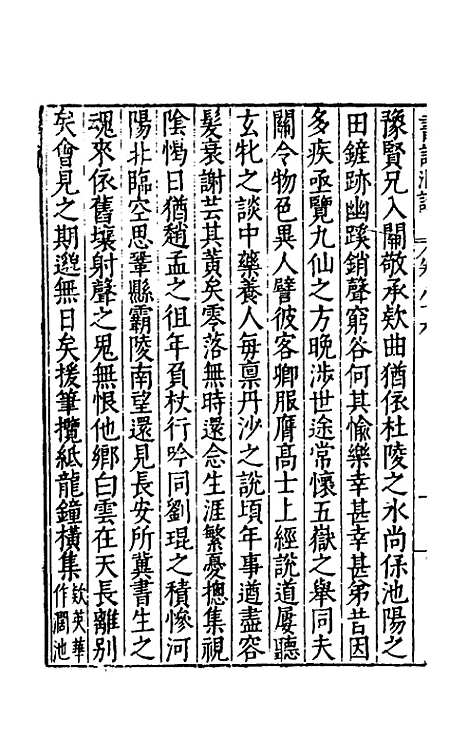 豫賢兄入關敬承欵曲猶依杜陵之水尚保池陽之
田鏟跡幽蹊銷聲窮谷何其愉樂幸甚幸甚弟昔因
多疾亟覽九仙之方晚涉世途常懷五嶽之舉同夫
關令物色異人譬彼客卿服膺高士上經說道屢聽
玄牝之談中藥養人每禀丹沙之說頃年事遒盡容
髮衰謝芸其黄矣零落無時還念生涯繁憂揔集視
陰愒日猶趙孟之徂年負杖行吟同劉琨之積慘河
陽北臨空思鞏縣霸陵南望還見長安所冀書生之
魂來依舊壤射聲之鬼無恨他鄉白雲在天長離别
矣會見之期邈無日矣援筆攬紙龍鐘橫集
欵英華
作濶池